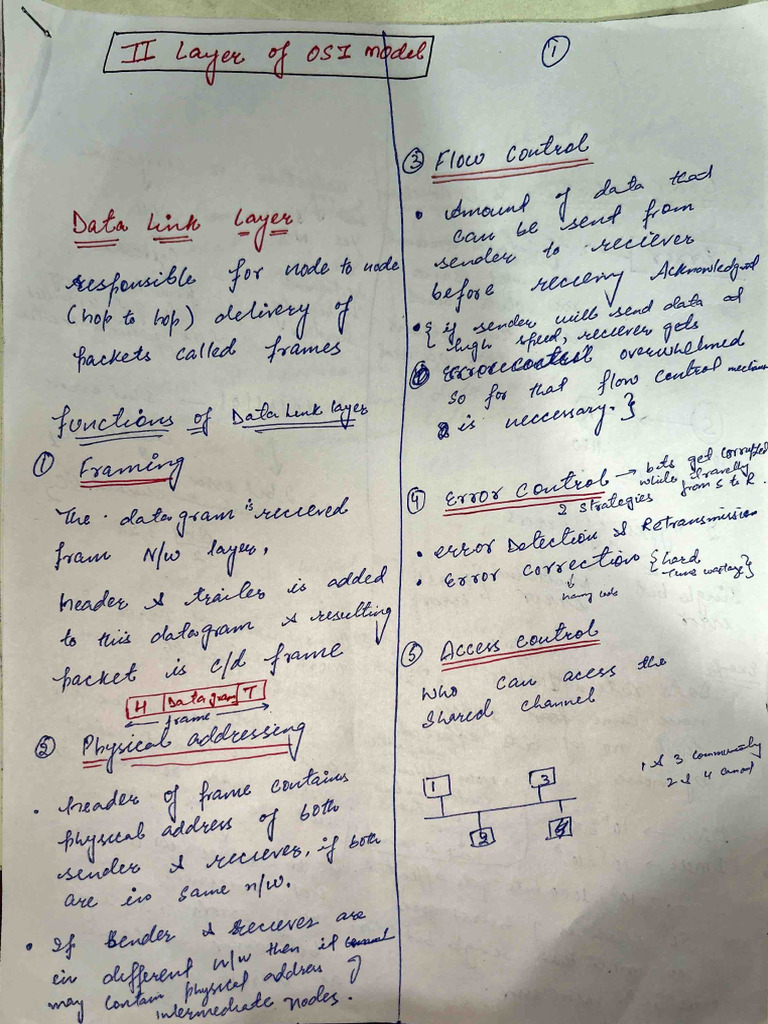 II Layer of OSI model
1
Data Link Layer
responsible for node to node
(hop to hop) delivery of
packets called frames
functions of Data Link layer
① Framing
The datagram is recieved
from N/w layer,
header & trailer is added
to this datagram & resulting
packet is c/d frame
H Datagram T
frame
② Physical addressing
• header of frame contains
physical address of both
sender & reciever, if both
are in same n/w.
• If sender & reciever are
in different n/w then it
may contain physical address of
intermediate nodes.
③ Flow Control
• Amount of data that
can be send from
sender to reciever
before Acknowledgmnt
• { if sender will send data at
high speed, reciever gets
overwhelmed
so for that flow control
is neccessary. }
④ Error Control → bits get corrupted
while from S to R.
2 strategies
• error Detection & Retransmission
• Error correction { hard
Time wastage }
⑤ Access control
Who can acess the
Shared channel
1 3
2 4
1 & 3
2 & 4